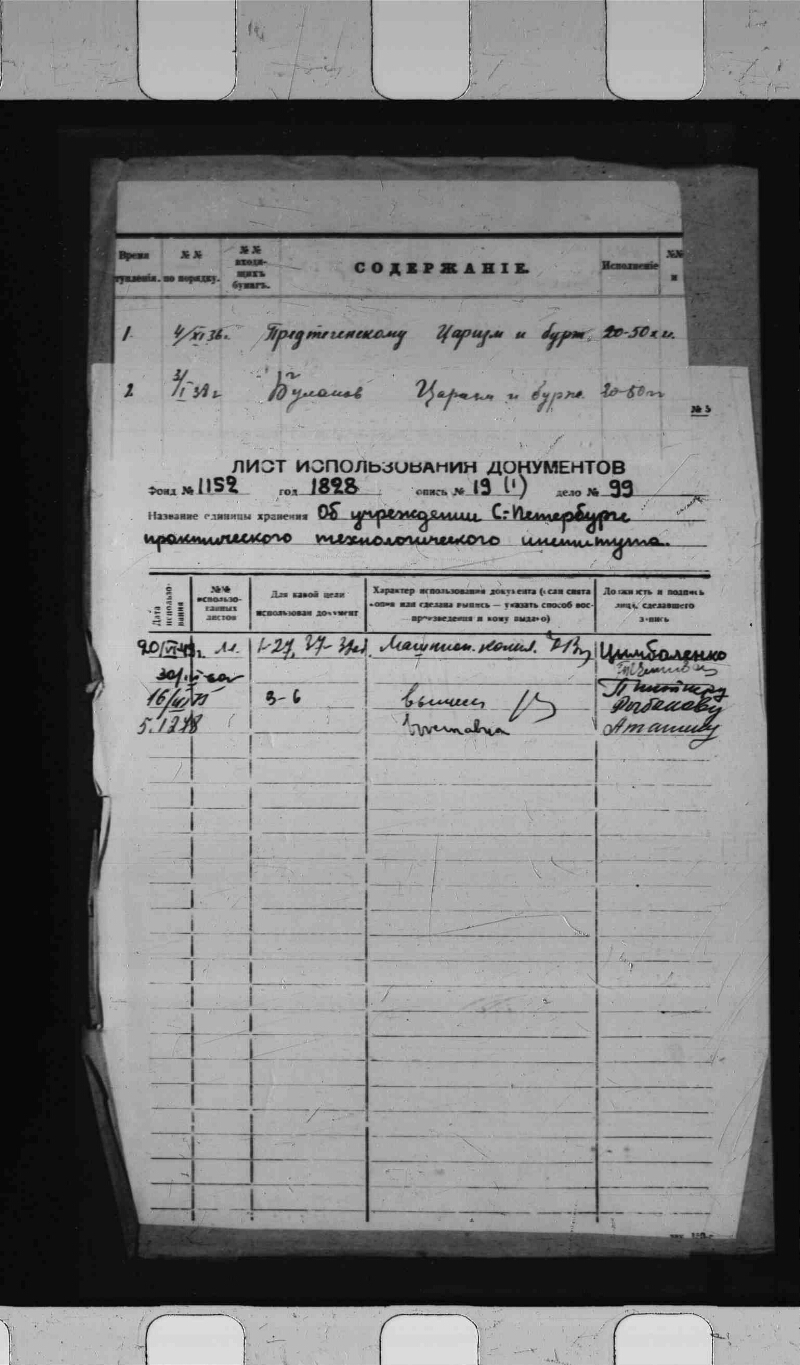 Время №№ №№ СОДЕРЖАНІЕ. Исполненіе №№
тупленія. по порядку. входя-щихъ бумагъ. и
1 4/XI 36г. Предтеченскому Царизм и бурж. 20-50 х г.
2 3/I 38 г Буланов Царизм и бурж. 20-50 гг
№ 5
ЛИСТ ИСПОЛЬЗОВАНИЯ ДОКУМЕНТОВ
Фонд № 1152 год 1828 опись № 19 (1) дело № 99
Название единицы хранения Об учреждении С.-Петербургс
практического технологического института.
Дата использо-вания
№№ использо-ванных листов
Для какой цели использован документ
Характер использования документа (если снята копия или сделана выпись — указать способ вос-произведения и кому выдано)
Должность и подпись лица, сделавшего запись
1-27, 37- Машиноп. копия. Цимбаленко
16/ 3-6
5.12 78 Атанину